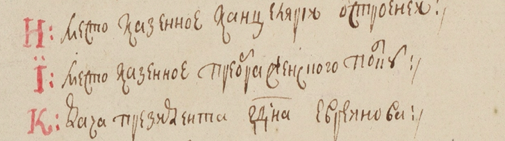 И: место казенное канцеляриi о строенех:/
Ї: место казенное преображенского полку:/
К: Каза президента евреянова:/